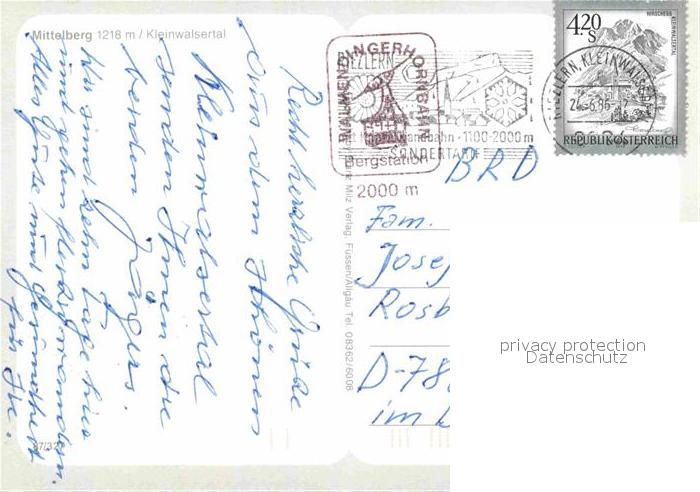 Mittelberg 1218 m / Kleinwalsertal
Recht herzliche Grüße
aus dem schönen
Kleinwalsertal
senden Ihnen die
beiden Jägers.
Wir sind zehn Tage hier
und gehen fleißig wandern.
Alles Gute und Gesundheit
für Sie.
87/320
Milz Verlag Füssen/Allgäu Tel. 08362/6008
WALMENDINGERHORNBAHN
Bergstation
2000 m
RIEZLERN
1100-2000 m
SONDERTARIF
RIEZLERN, KLEINWALSERTAL
4.20
S
HIRSCHEGG
KLEINWALSERTAL
REPUBLIK ÖSTERREICH
BRD
Fam.
Josef
Rosb
D-78
im
privacy protection
Datenschutz